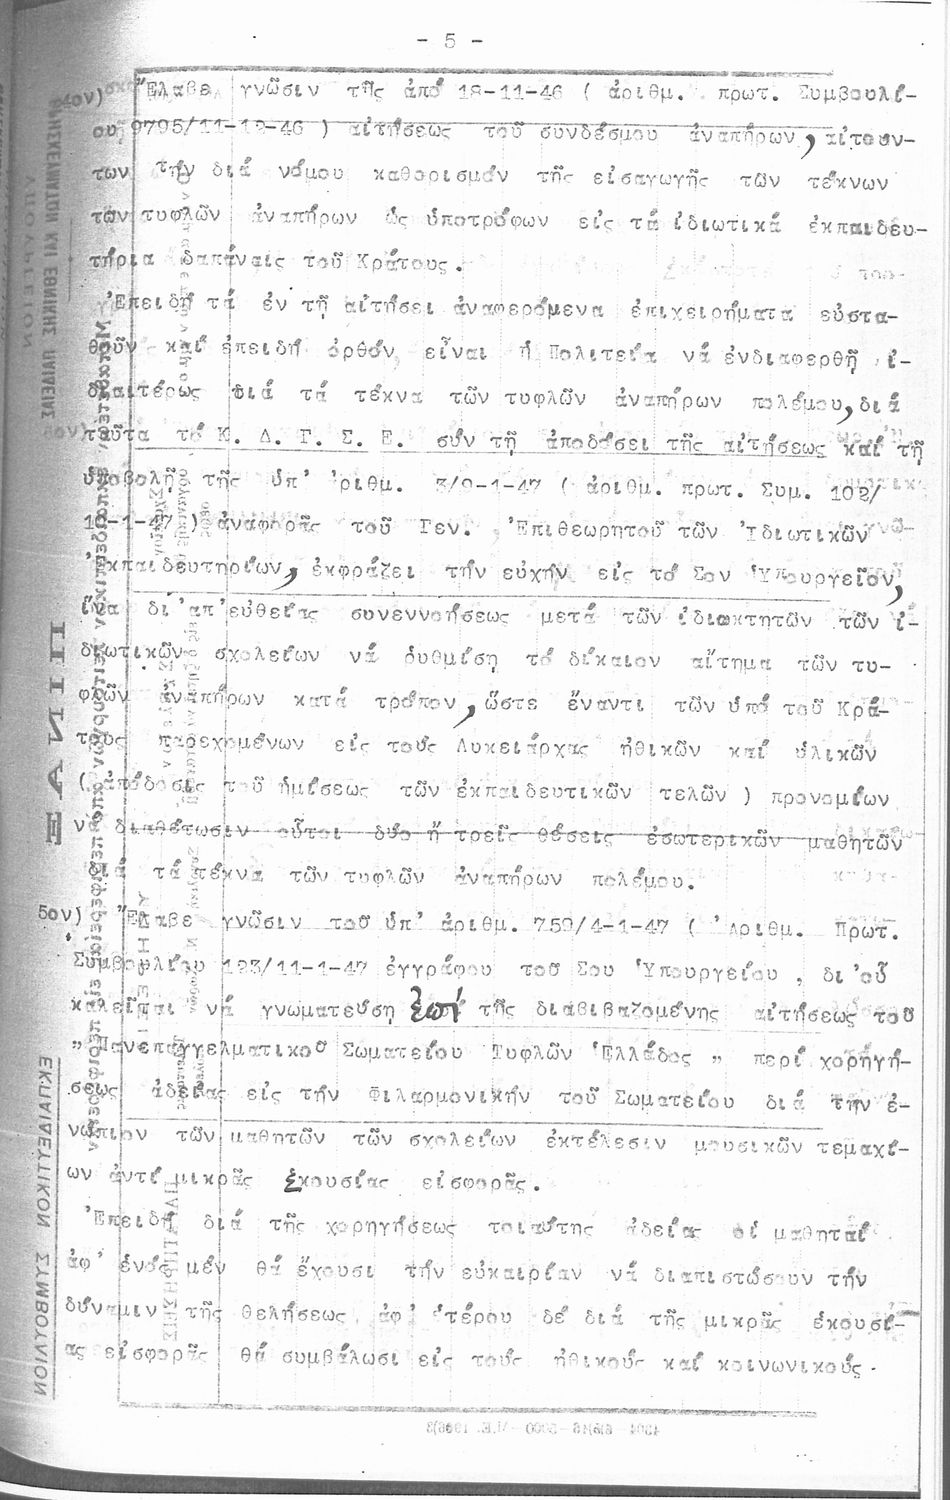 - 5 -
4ον) Ἔλαβε γνῶσιν τῆς ἀπό 18-11-46 ( ἀριθμ. πρωτ. Συμβουλί-
ου 9795/11-12-46 ) αἰτήσεως τοῦ συνδέσμου ἀναπήρων, αἰτουν-
των τήν διά νόμου καθορισμόν τῆς εἰσαγωγῆς τῶν τέκνων
τῶν τυφλῶν ἀναπήρων ὡς ὑποτρόφων εἰς τά ἰδιωτικά ἐκπαιδευ-
τήρια δαπάναις τοῦ Κράτους.
Ἐπειδή τά ἐν τῇ αἰτήσει ἀναφερόμενα ἐπιχειρήματα εὐστα-
θοῦν καί ἐπειδή ὀρθόν εἶναι ἡ Πολιτεία νά ἐνδιαφερθῇ ἰ-
διαιτέρως διά τά τέκνα τῶν τυφλῶν ἀναπήρων πολέμου, διά
ταῦτα τό Κ. Δ. Γ. Σ. Ε. σύν τῇ ἀποδόσει τῆς αἰτήσεως καί τῇ
ὑποβολῇ τῆς ὑπ' ἀριθμ. 3/9-1-47 ( ἀριθμ. πρωτ. Συμ. 102/
10-1-47 ) ἀναφορᾶς τοῦ Γεν. Ἐπιθεωρητοῦ τῶν Ἰδιωτικῶν
Ἐκπαιδευτηρίων, ἐκφράζει τήν εὐχήν εἰς τό Σον Ὑπουργεῖον,
ἵνα δι'ἀπ'εὐθείας συνεννοήσεως μετά τῶν ἰδιοκτητῶν τῶν ἰ-
διωτικῶν σχολείων νά ῥυθμίσῃ τό δίκαιον αἴτημα τῶν τυ-
φλῶν ἀναπήρων κατά τρόπον, ὥστε ἔναντι τῶν ὑπό τοῦ Κρά-
τους παρεχομένων εἰς τούς Λυκειάρχας ἠθικῶν καί ὑλικῶν
( ἀπόδοσις τοῦ ἡμίσεως τῶν ἐκπαιδευτικῶν τελῶν ) προνομίων
νά διαθέτωσιν οὗτοι δύο ἤ τρεῖς θέσεις ἐσωτερικῶν μαθητῶν
διά τά τέκνα τῶν τυφλῶν ἀναπήρων πολέμου.
5ον) Ἔλαβε γνῶσιν τοῦ ὑπ' ἀριθμ. 759/4-1-47 ( Ἀριθμ. Πρωτ.
Συμβουλίου 123/11-1-47 ἐγγράφου τοῦ Σου Ὑπουργείου , δι'οὗ
καλεῖται νά γνωματεύσῃ ἐπί τῆς διαβιβαζομένης αἰτήσεως τοῦ
" Πανεπαγγελματικοῦ Σωματείου Τυφλῶν Ἑλλάδος " περί χορηγή-
σεως ἀδείας εἰς τήν Φιλαρμονικήν τοῦ Σωματείου διά τήν ἐ-
νώπιον τῶν μαθητῶν τῶν σχολείων ἐκτέλεσιν μουσικῶν τεμαχί-
ων ἀντί μικρᾶς ἑκουσίας εἰσφορᾶς.
Ἐπειδή διά τῆς χορηγήσεως τοιαύτης ἀδείας οἱ μαθηταί
ἀφ' ἑνός μέν θά ἔχουσι τήν εὐκαιρίαν νά διαπιστώσουν τήν
δύναμιν τῆς θελήσεως ἀφ' ἑτέρου δέ διά τῆς μικρᾶς ἑκουσί-
ας εἰσφορᾶς θά συμβάλωσι εἰς τούς ἠθικούς καί κοινωνικούς.